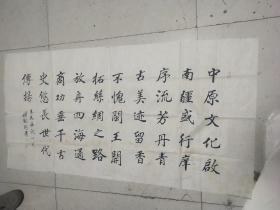 中原文化啟
南疆或行庠
序流芳丹青
古美迹留香
不愧關王開
拓絲綢之路
放舟四海通
商功垂千古
史悠長世代
傳揚